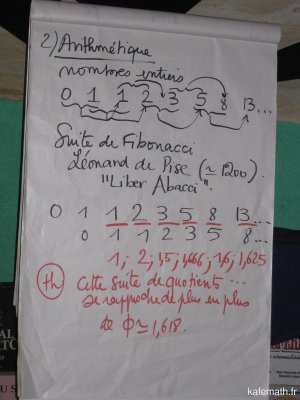 2) Arithmétique
nombres entiers
0 1 1 2 3 5 8 13...
Suite de Fibonacci
Léonard de Pise (≃ 1200).
"Liber Abacci".
0 1 1 2 3 5 8 13...
0 1 1 2 3 5 8...
1; 2; 1,5; 1,666; 1,6; 1,625
th Cette suite de quotients...
se rapproche de plus en plus
de Φ ≃ 1,618.
kafemath.fr